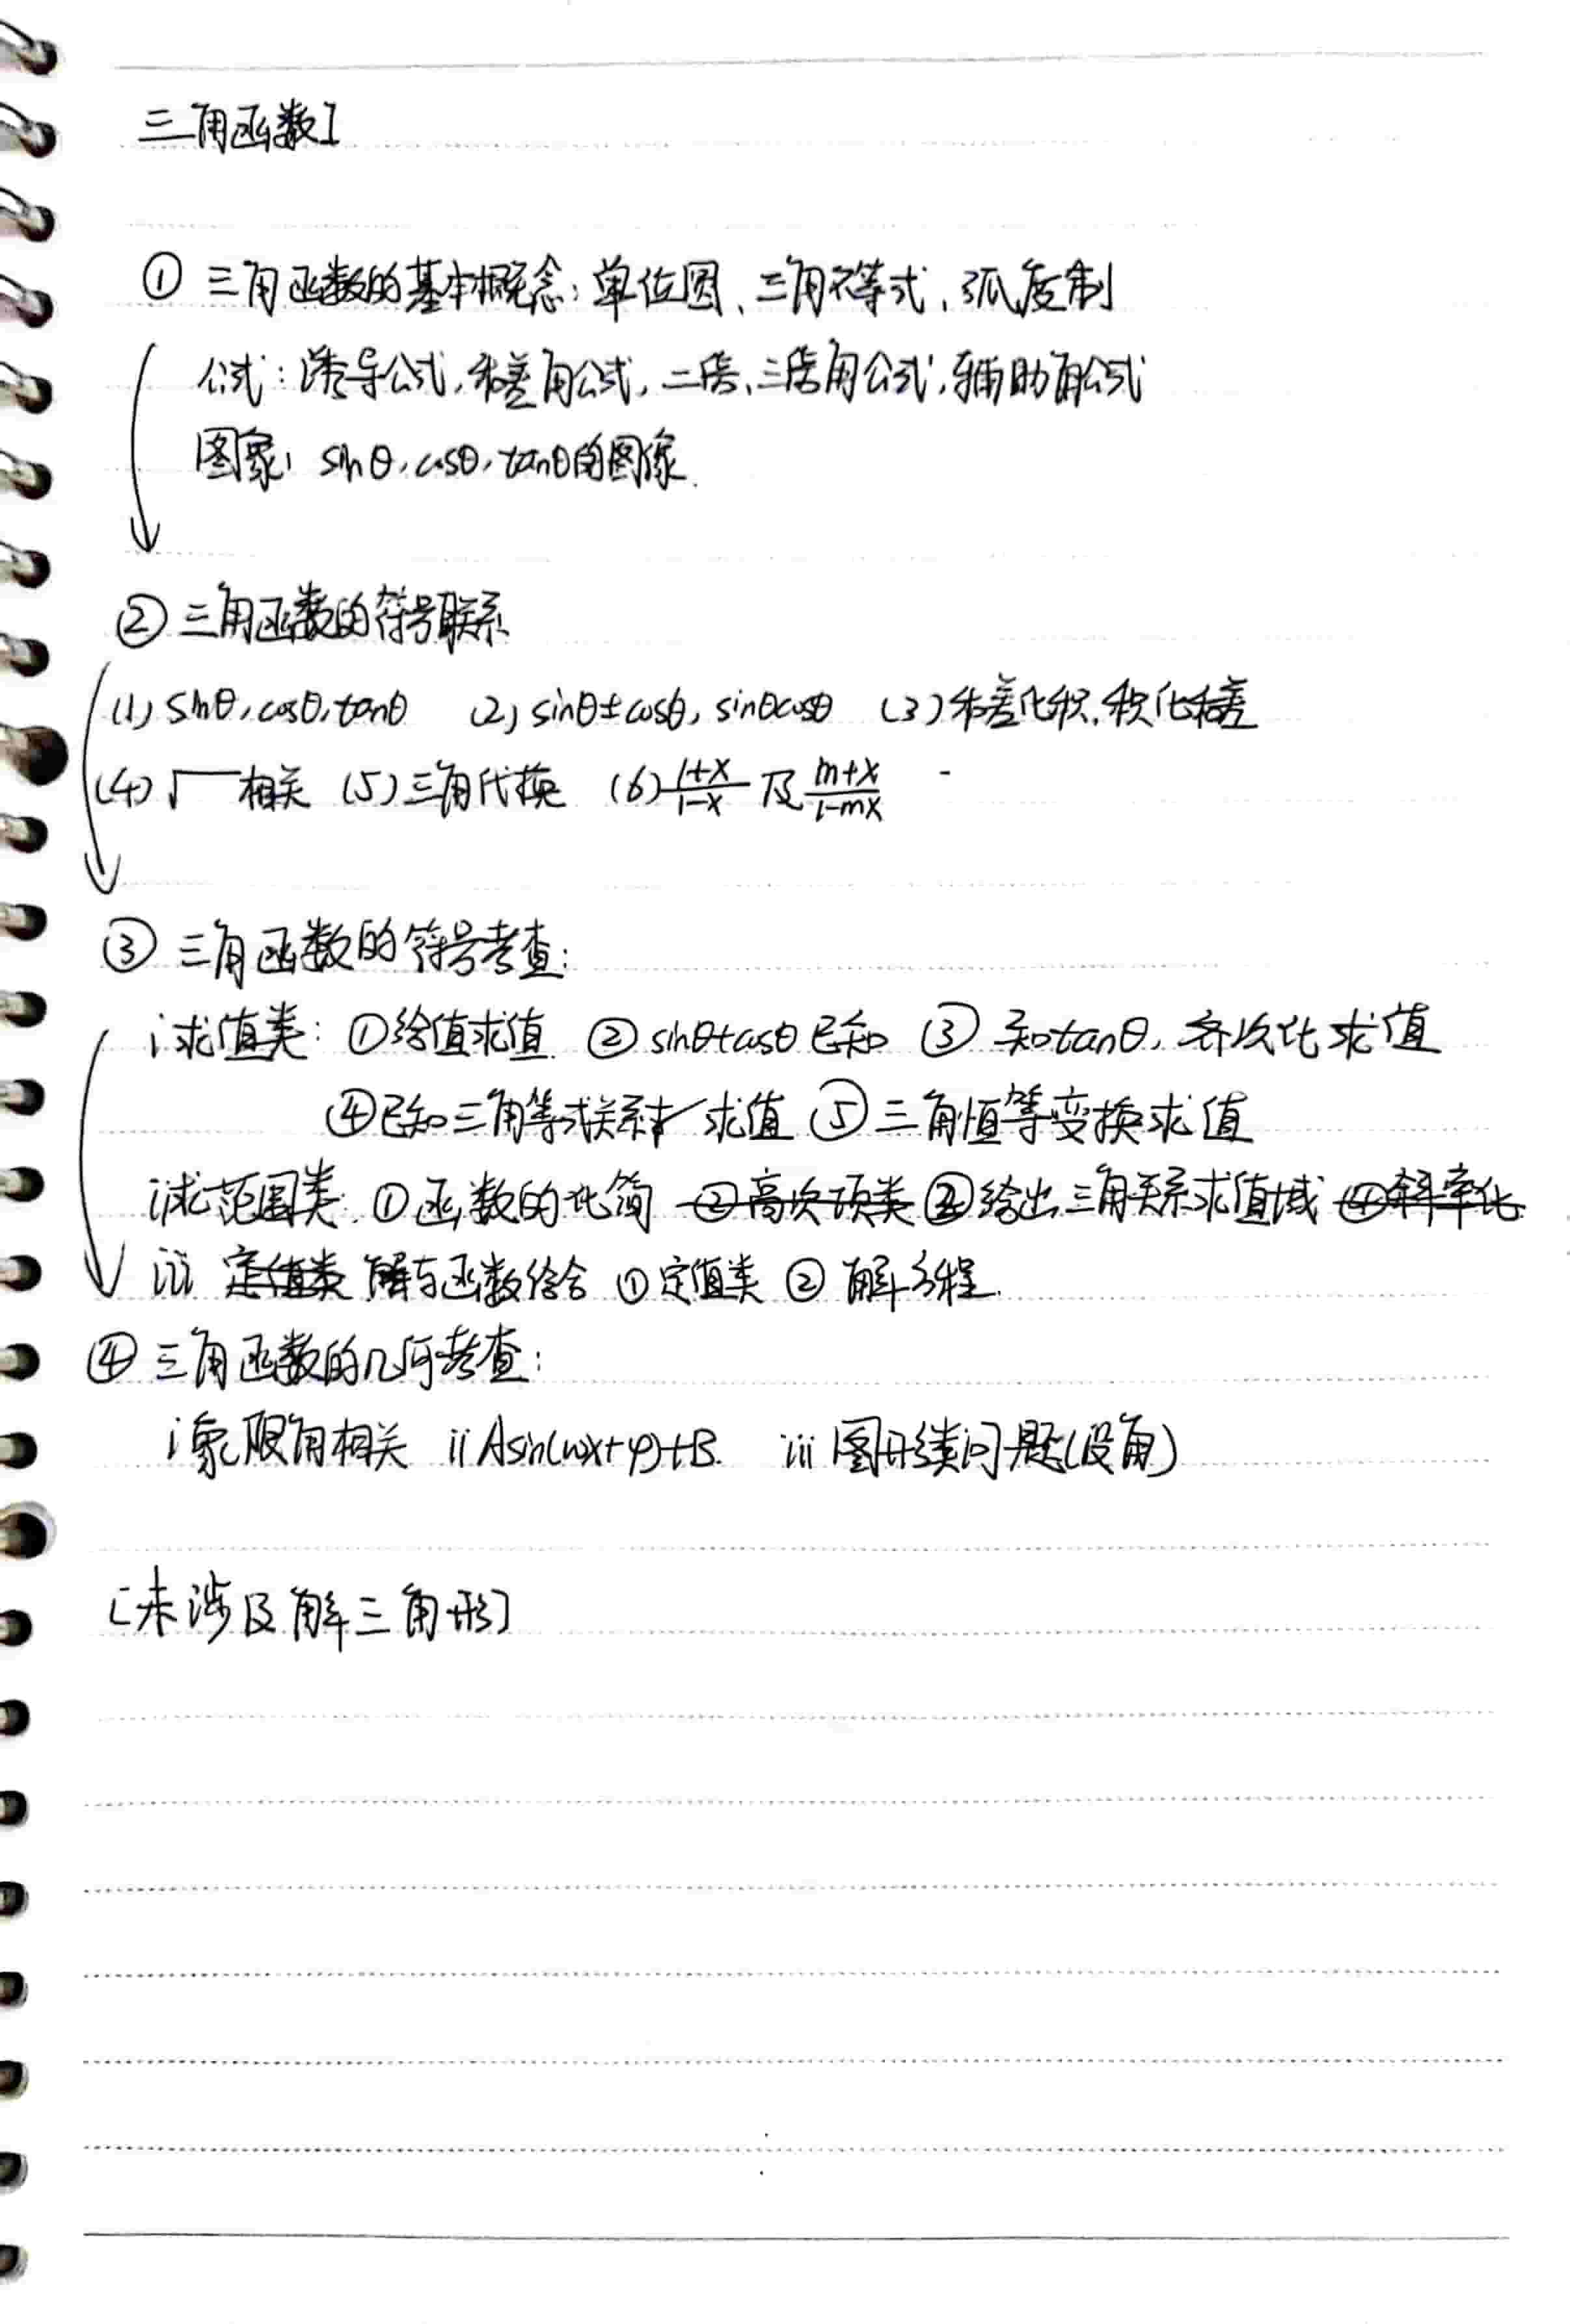 三角函数I
① 三角函数的基本概念：单位圆、三角不等式、弧度制
公式：诱导公式，和差角公式，二倍、三倍角公式，辅助角公式
图象：sinθ，cosθ，tanθ的图像．
② 三角函数的符号联系
(1) sinθ，cosθ，tanθ (2) sinθ±cosθ，sinθcosθ (3) 和差化积，积化和差
(4) √ 相关 (5) 三角代换 (6) (1+x)/(1-x) 及 (m+x)/(1-mx)
③ 三角函数的符号考查：
i 求值类：①给值求值 ② sinθ+cosθ 已知 ③ 知tanθ，齐次化求值
④已知三角等式关系求值 ⑤三角恒等变换求值
ii求范围类：①函数的化简 ②高次项类 ②给出三角关系求值域 ④斜率化
iii 定值类 解与函数综合 ① 定值类 ② 解方程．
④ 三角函数的几何考查：
i 象限角相关 ii Asin(ωx+φ)+B． iii 图形类问题(设角)
[未涉及解三角形]